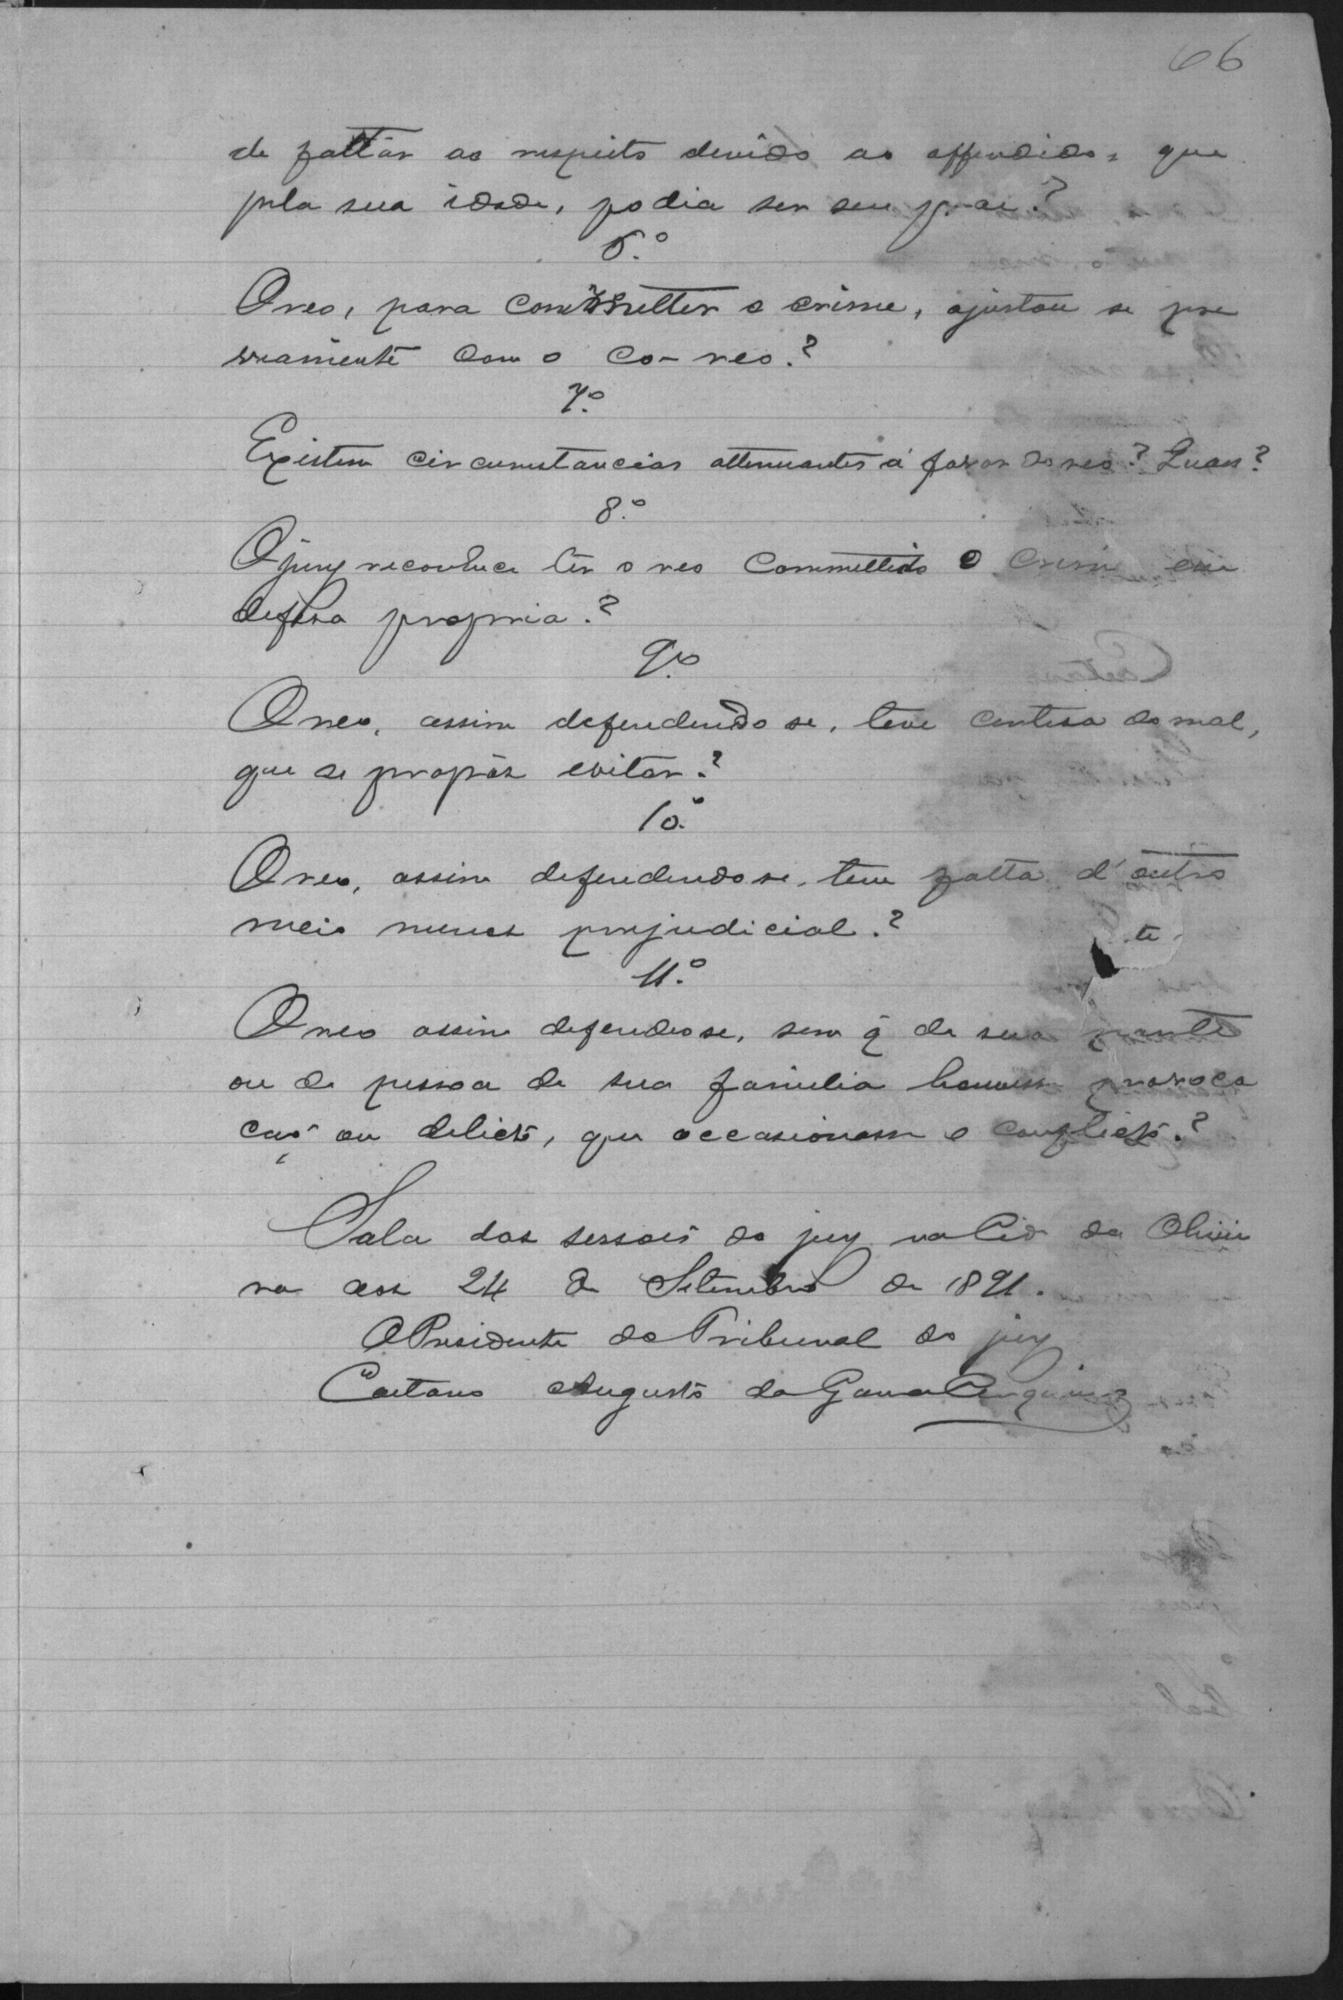 66
de faltar ao respeito devido ao offendido, que
pela sua idade, podia ser seu pai?
6.º
O reo, para commetter o crime, ajustou se pre
viamente com o co-reo?
7.º
Existem circumstancias attenuantes á favor do reo? Quaes?
8.º
O jury reconhece ter o reo commettido o crime em
defesa propria?
9.º
O reo, assim defendendo se, teve certesa do mal,
que se propôz evitar?
10.º
O reo, assim defendendo se, teve falta d'outro
meio menos prejudicial?
11.º
O reo assim defendeo se, sem q̃ de sua parte
ou de pessoa de sua familia houvesse provoca
ção ou delicto, que occasionasse o conflicto?
Sala das sessões do jury na Cid. da Olivei
ra aos 24 de Setembro de 1891.
O Presidente do Tribunal do jury
Caetano Augusto da Gama Cerqueira